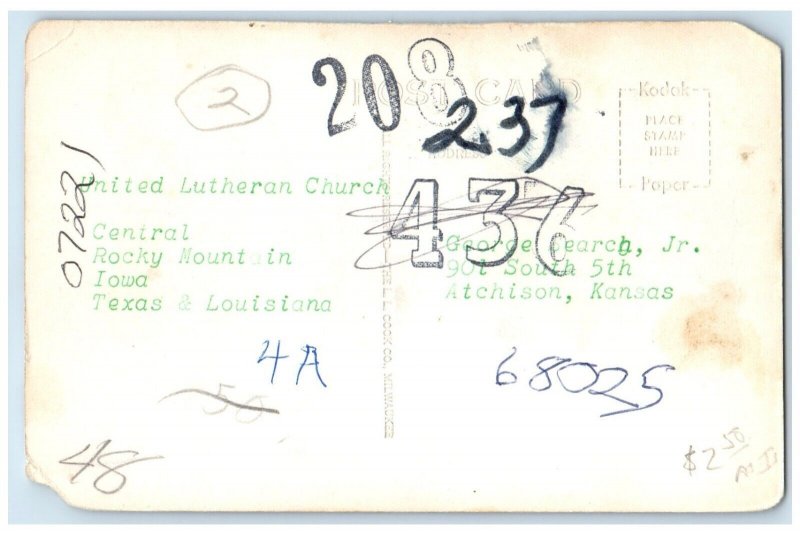 2
208
POST CARD
237
Kodak
PLACE
STAMP
HERE
Paper
ADDRESS
07221
United Lutheran Church
436
Central
Rocky Mountain
Iowa
Texas & Louisiana
George Search, Jr.
901 South 5th
Atchison, Kansas
L. L. COOK CO., MILWAUKEE
4A
68025
50
48
$2 50